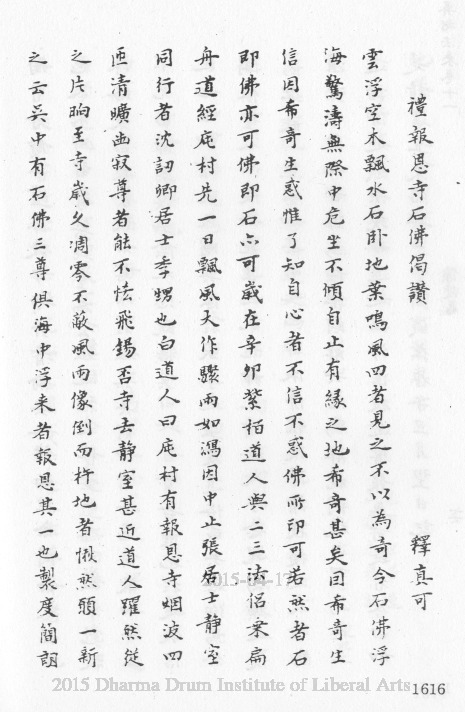 禮報恩寺石佛偈讚　釋真可
雲浮空木飄水石卧地葉鳴風四者見之不以為奇今石佛浮
海驚濤無際中危坐不傾自止有緣之地希奇甚矣因希奇生
信因希奇生惑惟了知自心者不信不惑佛所印可若然者石
即佛亦可佛即石亦可歲在辛卯紫栢道人與二三法侶乘扁
舟道經庉村先一日飄風大作驟雨如瀉因中止張居士靜室
同行者沈訒卿居士季甥也白道人曰庉村有報恩寺烟波四
匝清曠幽寂尊者能不恡飛錫否寺去靜室甚近道人躍然從
之片晌至寺歲久凋零不敵風雨像倒而杵地者愀然願一新
之云吳中有石佛三尊俱海中浮来者報恩其一也製度簡朗
2015 Dharma Drum Institute of Liberal Arts
1616